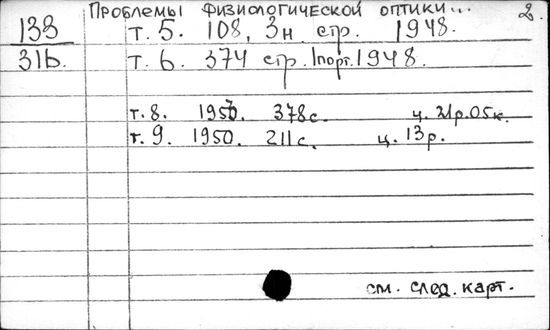 Проблемы физиологической оптики... 2.
133 т. 5. 108, 3н стр. 1948.
31Б. т. 6. 374 стр. 1порт. 1948.
т. 8. 1950. 378с. ц. 21р.05к.
т. 9. 1950. 211с. ц. 13р.
см. след. карт.